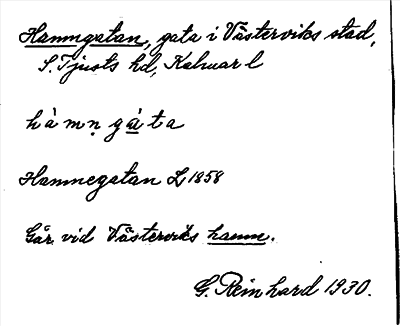 Hamngatan, gata i Västerviks stad,
S. Tjusts hd, Kalmar l
hàmṇ gáta
Hamnegatan L 1858
Går vid Västerviks hamn.
G. Reinhard 1930.